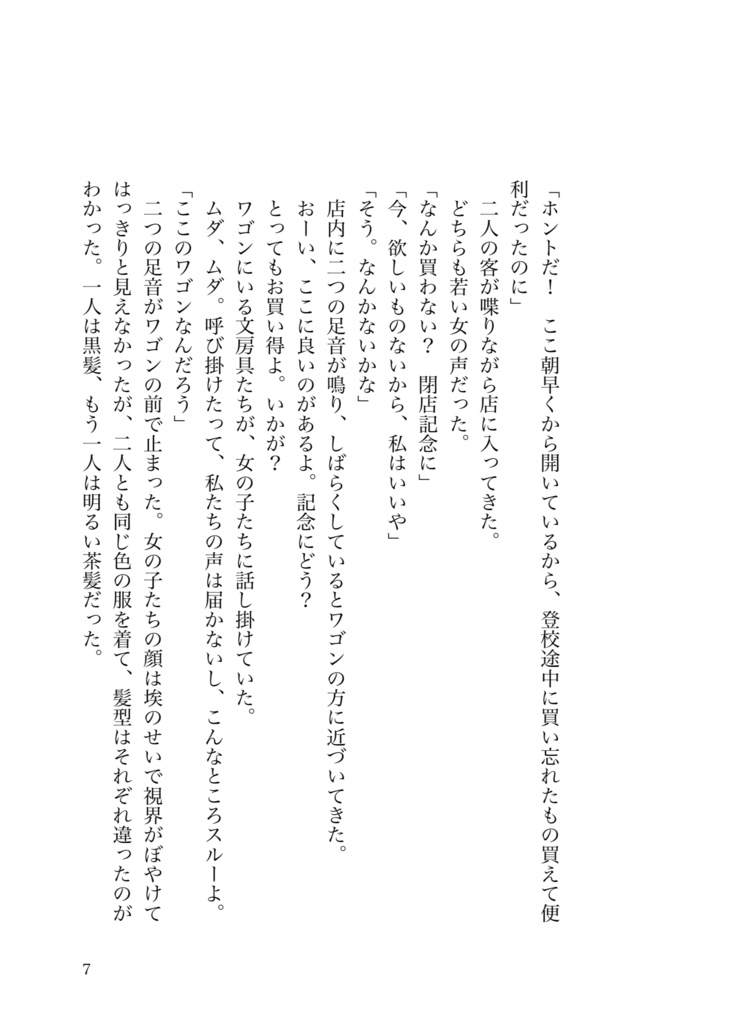 「ホントだ！　ここ朝早くから開いているから、登校途中に買い忘れたもの買えて便
利だったのに」
　二人の客が喋りながら店に入ってきた。
　どちらも若い女の声だった。
「なんか買わない？　閉店記念に」
「今、欲しいものないから、私はいいや」
「そう。なんかないかな」
　店内に二つの足音が鳴り、しばらくしているとワゴンの方に近づいてきた。
　おーい、ここに良いのがあるよ。記念にどう？
　とってもお買い得よ。いかが？
　ワゴンにいる文房具たちが、女の子たちに話し掛けていた。
　ムダ、ムダ。呼び掛けたって、私たちの声は届かないし、こんなところスルーよ。
「ここのワゴンなんだろう」
　二つの足音がワゴンの前で止まった。女の子たちの顔は埃のせいで視界がぼやけて
はっきりと見えなかったが、二人とも同じ色の服を着て、髪型はそれぞれ違ったのが
わかった。一人は黒髪、もう一人は明るい茶髪だった。
7